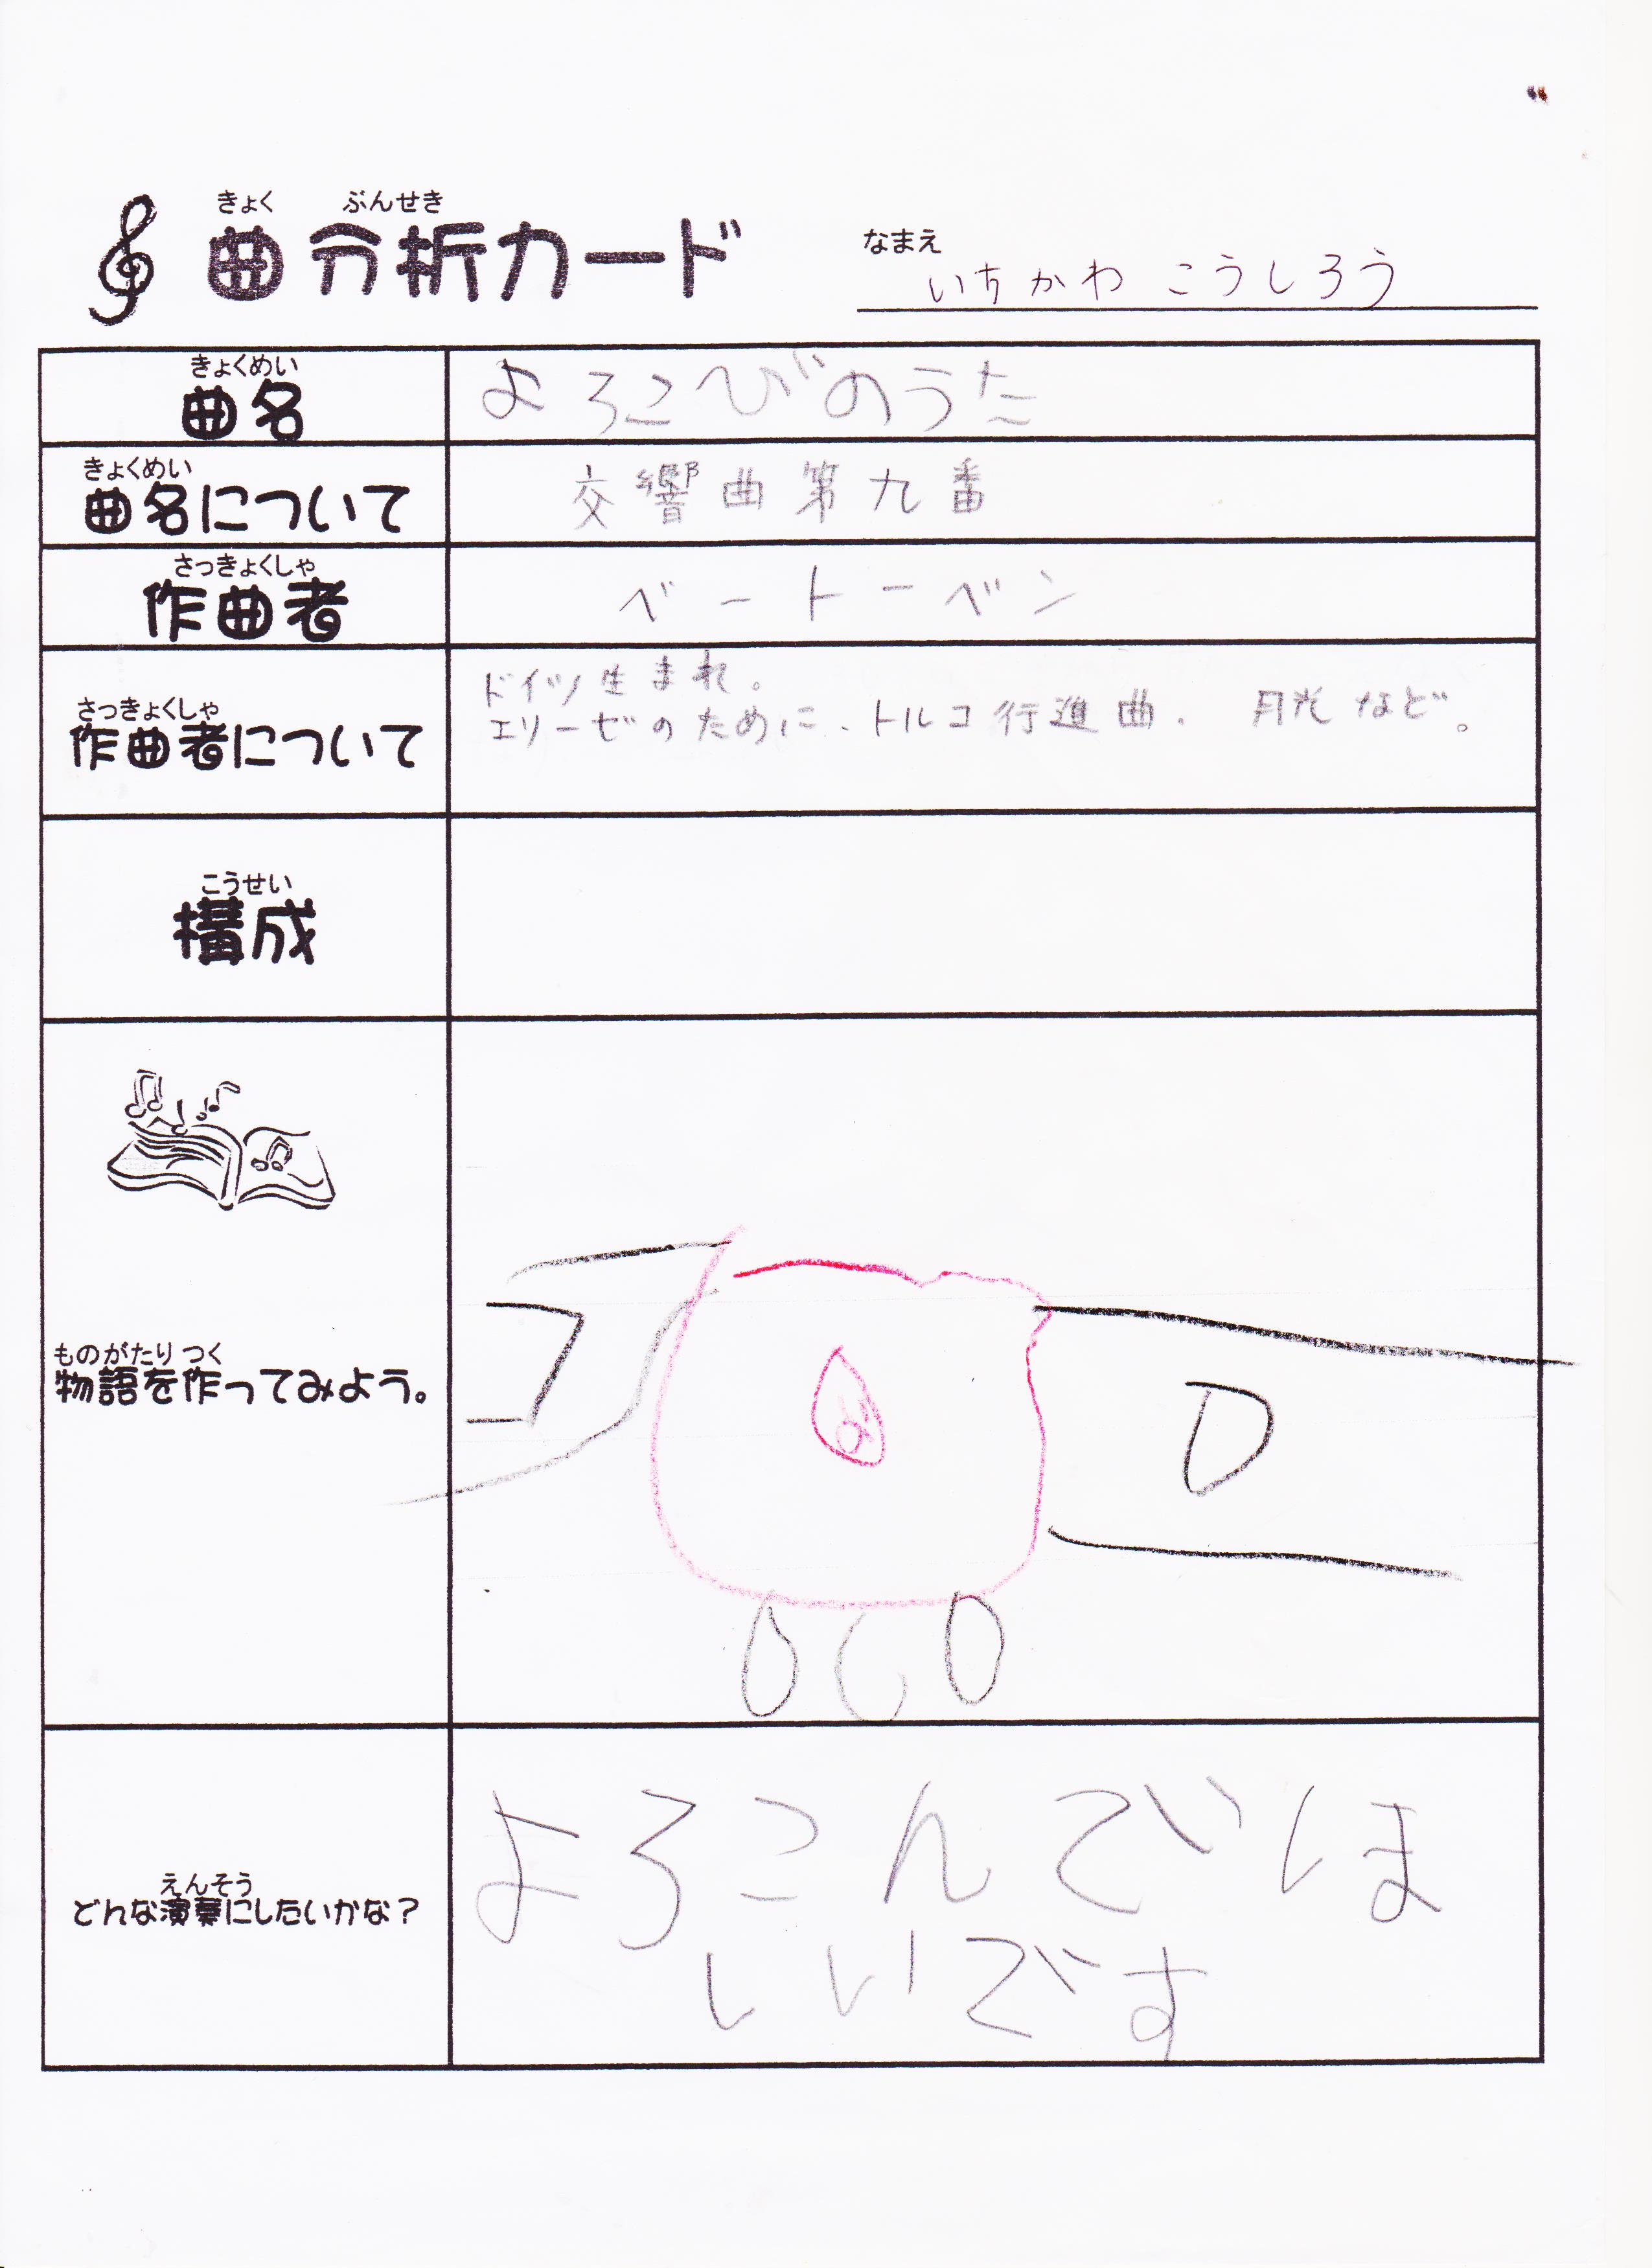 きょく ぶんせき
曲分析カード
なまえ
いちかわ こうしろう
きょくめい
曲名
よろこびのうた
きょくめい
曲名について
交響曲第九番
さっきょくしゃ
作曲者
ベートーベン
さっきょくしゃ
作曲者について
ドイツ生まれ。
エリーゼのために、トルコ行進曲、月光など。
こうせい
構成
ものがたり つく
物語を作ってみよう。
D
えんそう
どんな演奏にしたいかな?
よろこんでほ
しいです